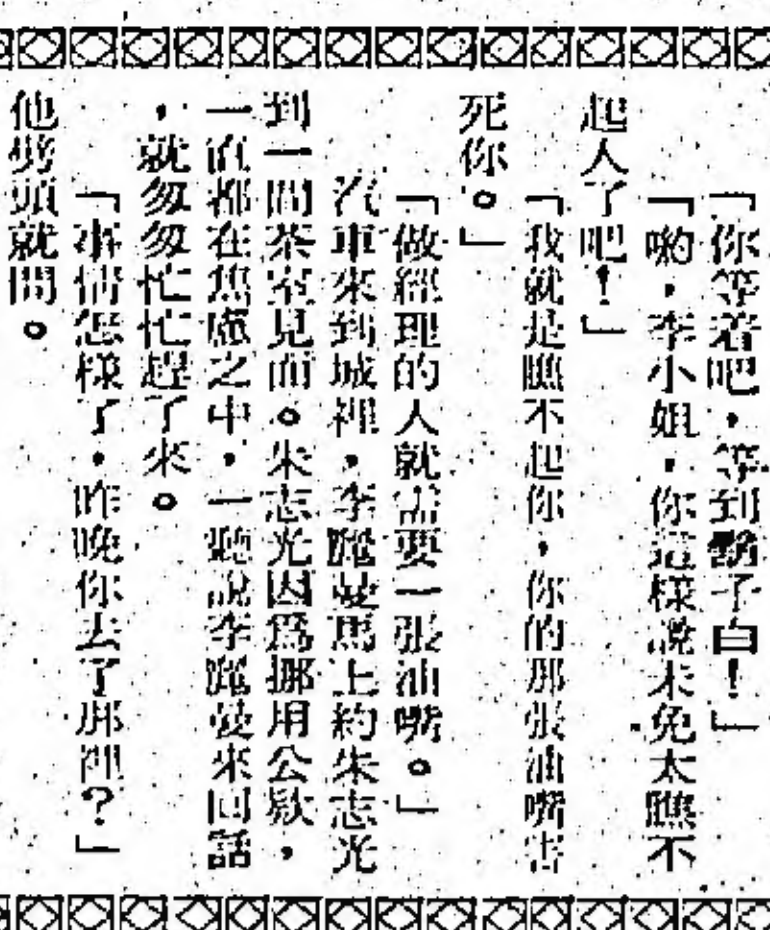 「你等着吧,等到鬍子白!」
「喲,李小姐,你這樣說未免太瞧不
起人了吧!」
「我就是瞧不起你,你的那張油嘴害
死你。」
「做經理的人就需要一張油嘴。」
汽車來到城裡,李麗曼馬上約朱志光
到一間茶室見面。朱志光因爲挪用公欵,
一直都在焦慮之中,一聽說李麗曼來回話
,就匆匆忙忙趕了來。
「事情怎樣了,昨晚你去了那裡?」
他劈頭就問。